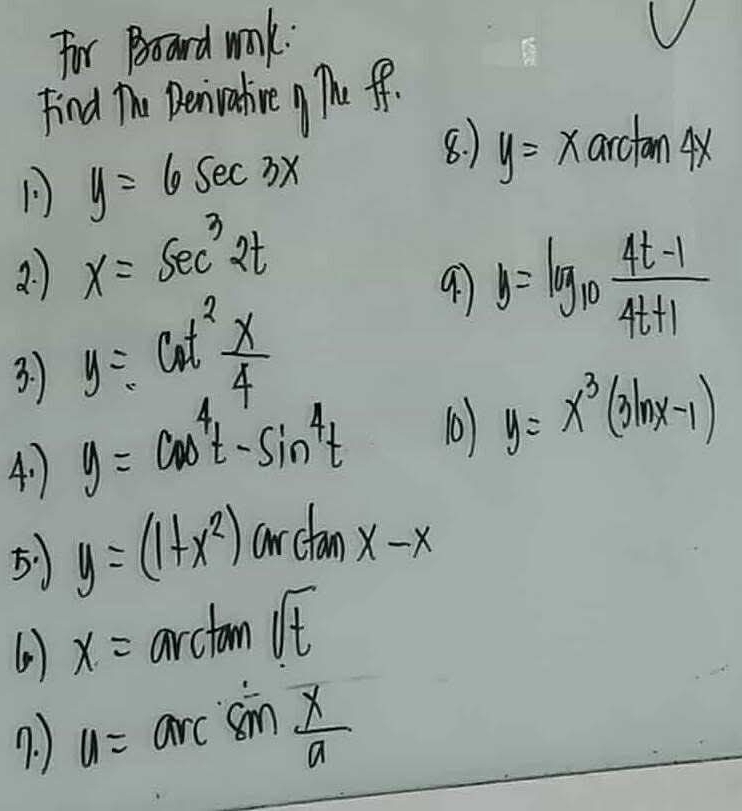 For Board work:
Find The Derivative of The ff.
1.) y = 6 sec 3x
2.) x = sec³ 2t
3.) y = cot² x/4
4.) y = cos⁴t - sin⁴t
5.) y = (1+x²) arctan x - x
6.) x = arctan √t
7.) u = arc sin x/a
8.) y = x arctan 4x
9.) y = log₁₀ 4t-1/4t+1
10) y = x³(3lnx-1)